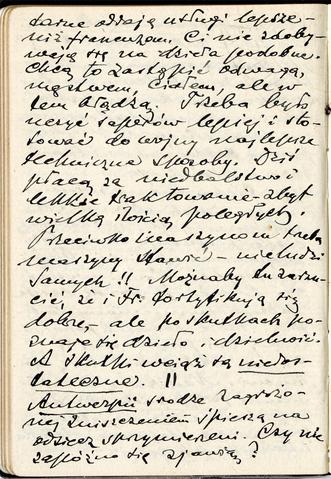 darne oddają usługi lepsze
niż francuzom. Ci nie zdoby-
wają się na dzieła podobne.
Chcą to zastąpić odwagą,
męstwem, ciałem, ale w
tem błądzą. Trzeba było
uczyć saperów lepiej i sto-
sować do wojny najlepsze
techniczne sposoby. Dziś
płacą za niedbalstwo i
lekkie traktowanie - zbyt
wielką ilością poległych.
Przeciwko maszynom trzeba
maszyny stawić - nie ludzi
samych!! Możnaby tu zarzu-
cić, że i Fr. fortyfikują się
dobrze, ale po skutkach po-
znaje się dzieło i dzielność.
A skutki wciąż są niedos-
tateczne. !!
Antwerpii srodze zagrożo-
nej zniszczeniem śpieszą na
odsiecz sprzymierzeni. Czy nie
zapóźno się zjawią?